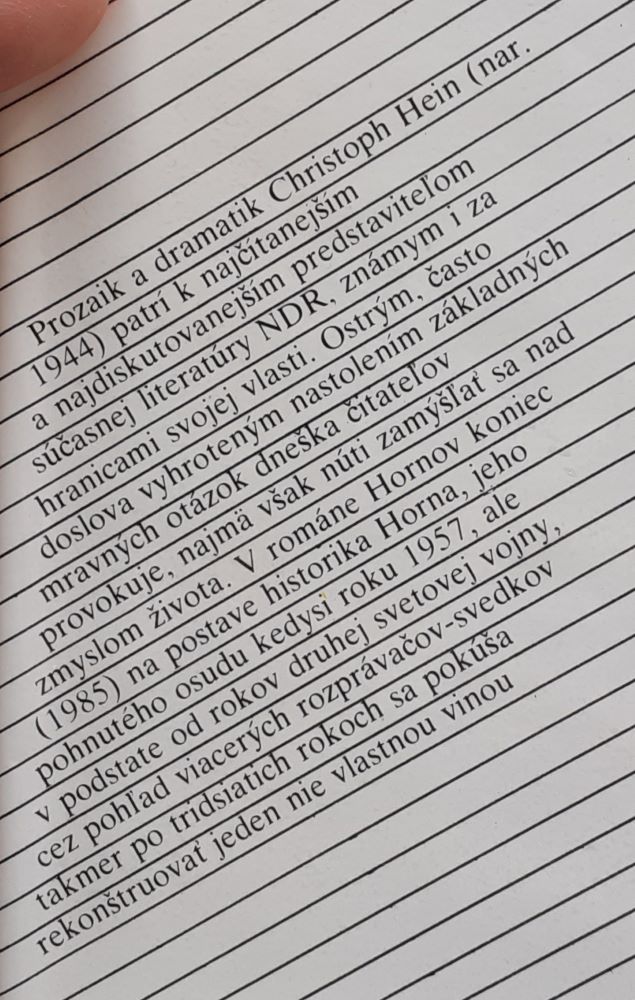 Prozaik a dramatik Christoph Hein (nar.
1944) patrí k najčítanejším
a najdiskutovanejším predstaviteľom
súčasnej literatúry NDR, známym i za
hranicami svojej vlasti. Ostrým, často
doslova vyhroteným nastolením základných
mravných otázok dneška čitateľov
provokuje, najmä však núti zamýšľať sa nad
zmyslom života. V románe Hornov koniec
(1985) na postave historika Horna, jeho
pohnutého osudu kedysi roku 1957, ale
v podstate od rokov druhej svetovej vojny,
cez pohľad viacerých rozprávačov-svedkov
takmer po tridsiatich rokoch sa pokúša
rekonštruovať jeden nie vlastnou vinou